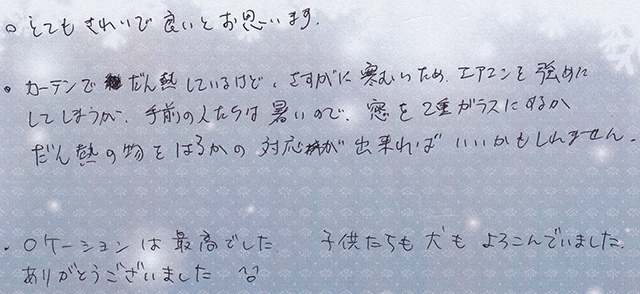 ○ とてもきれいで良いとお思います.
• カーテンで だん熱しているけど、さすがに寒むいため、エアコンを強めに
してしまうが、手前の人たちは暑いので、窓を2重ガラスにするか
だん熱の物をはるかの対応が出来ればいいかもしれません.
• ロケーションは最高でした 子供たちも犬もよろこんでいました.
ありがとうございました